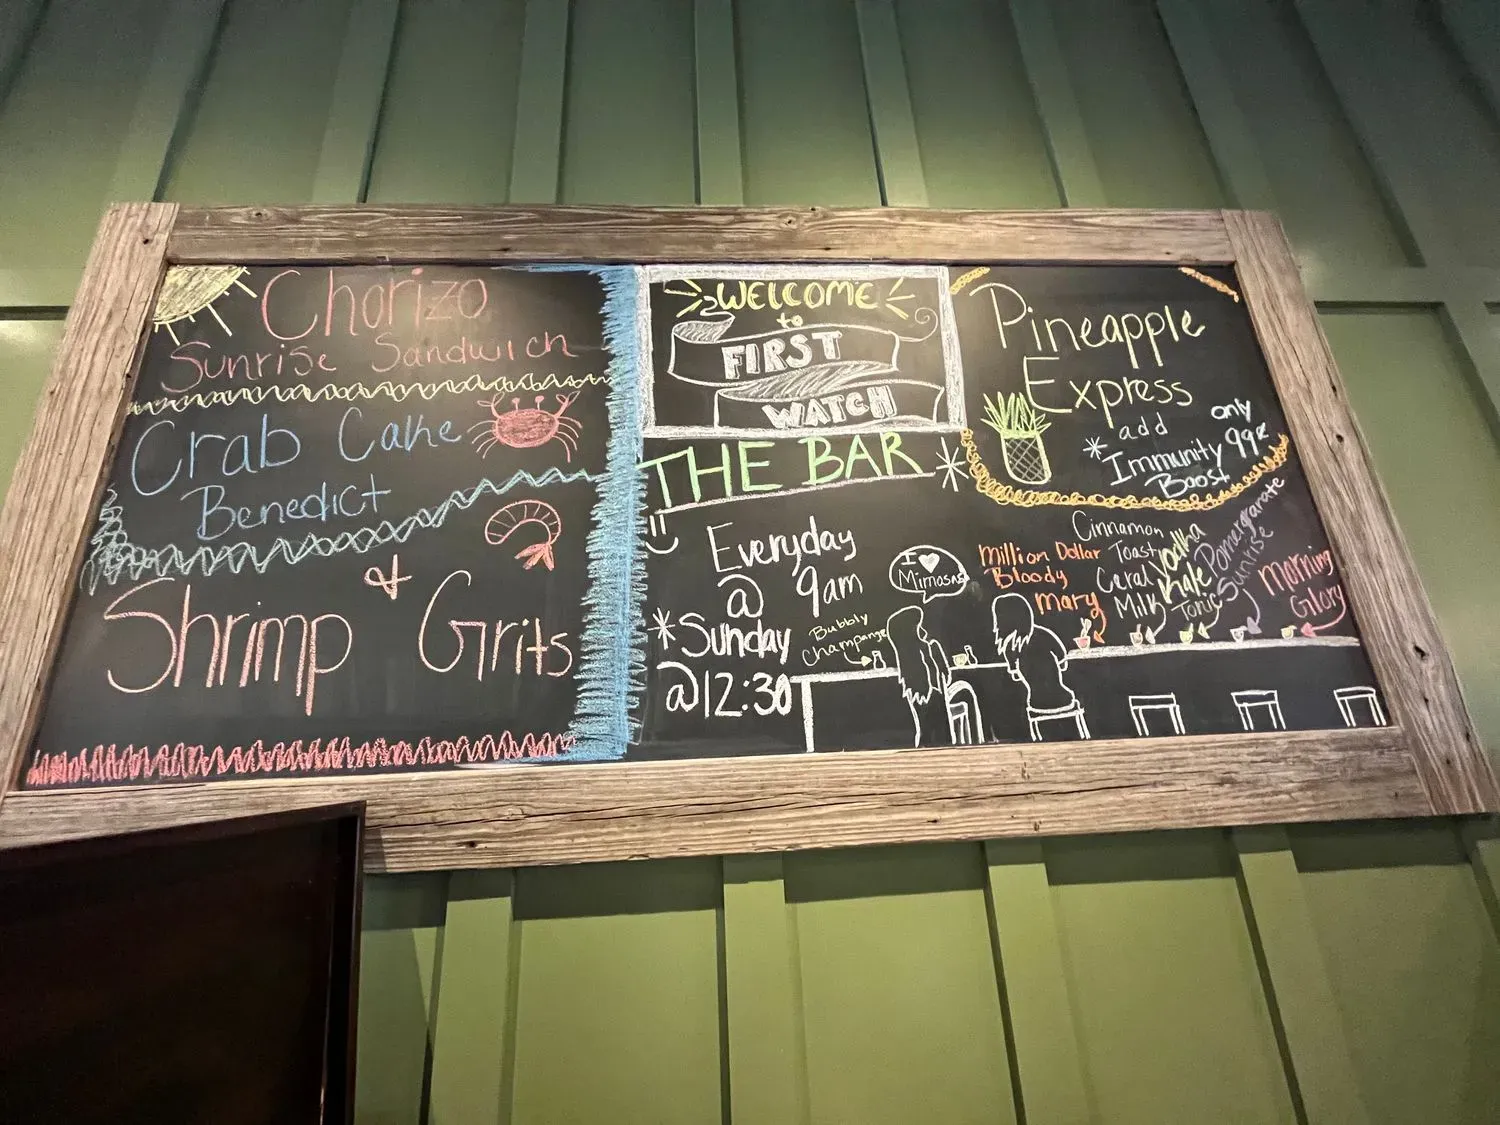 Chorizo
Sunrise Sandwich
Crab Cake
Benedict
&
Shrimp Grits
WELCOME
to
FIRST
WATCH
THE BAR
Everyday
@ 9am
*Sunday
@12:30
Bubbly
Champange
I ♥
Mimosas
Pineapple
Express
add
* Immunity
Boost
only
99¢
Million Dollar
Bloody
Mary
Cinnamon
Toast
Ceral
Milk
Vodka
Kale
Tonic
Pomergranate
Sunrise
Morning
Glory